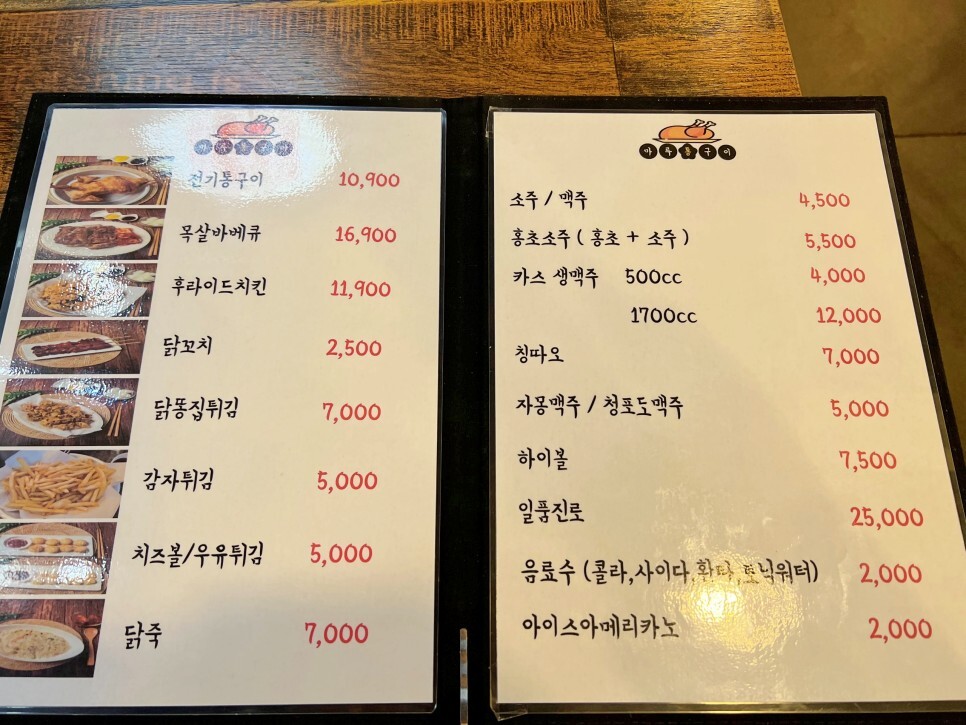 마루통구이
전기통구이 10,900
목살바베큐 16,900
후라이드치킨 11,900
닭꼬치 2,500
닭똥집튀김 7,000
감자튀김 5,000
치즈볼/우유튀김 5,000
닭죽 7,000
마루통구이
소주 / 맥주 4,500
홍초소주 ( 홍초 + 소주 ) 5,500
카스 생맥주 500cc 4,000
1700cc 12,000
칭따오 7,000
자몽맥주 / 청포도맥주 5,000
하이볼 7,500
일품진로 25,000
음료수 (콜라,사이다,환타,토닉워터) 2,000
아이스아메리카노 2,000